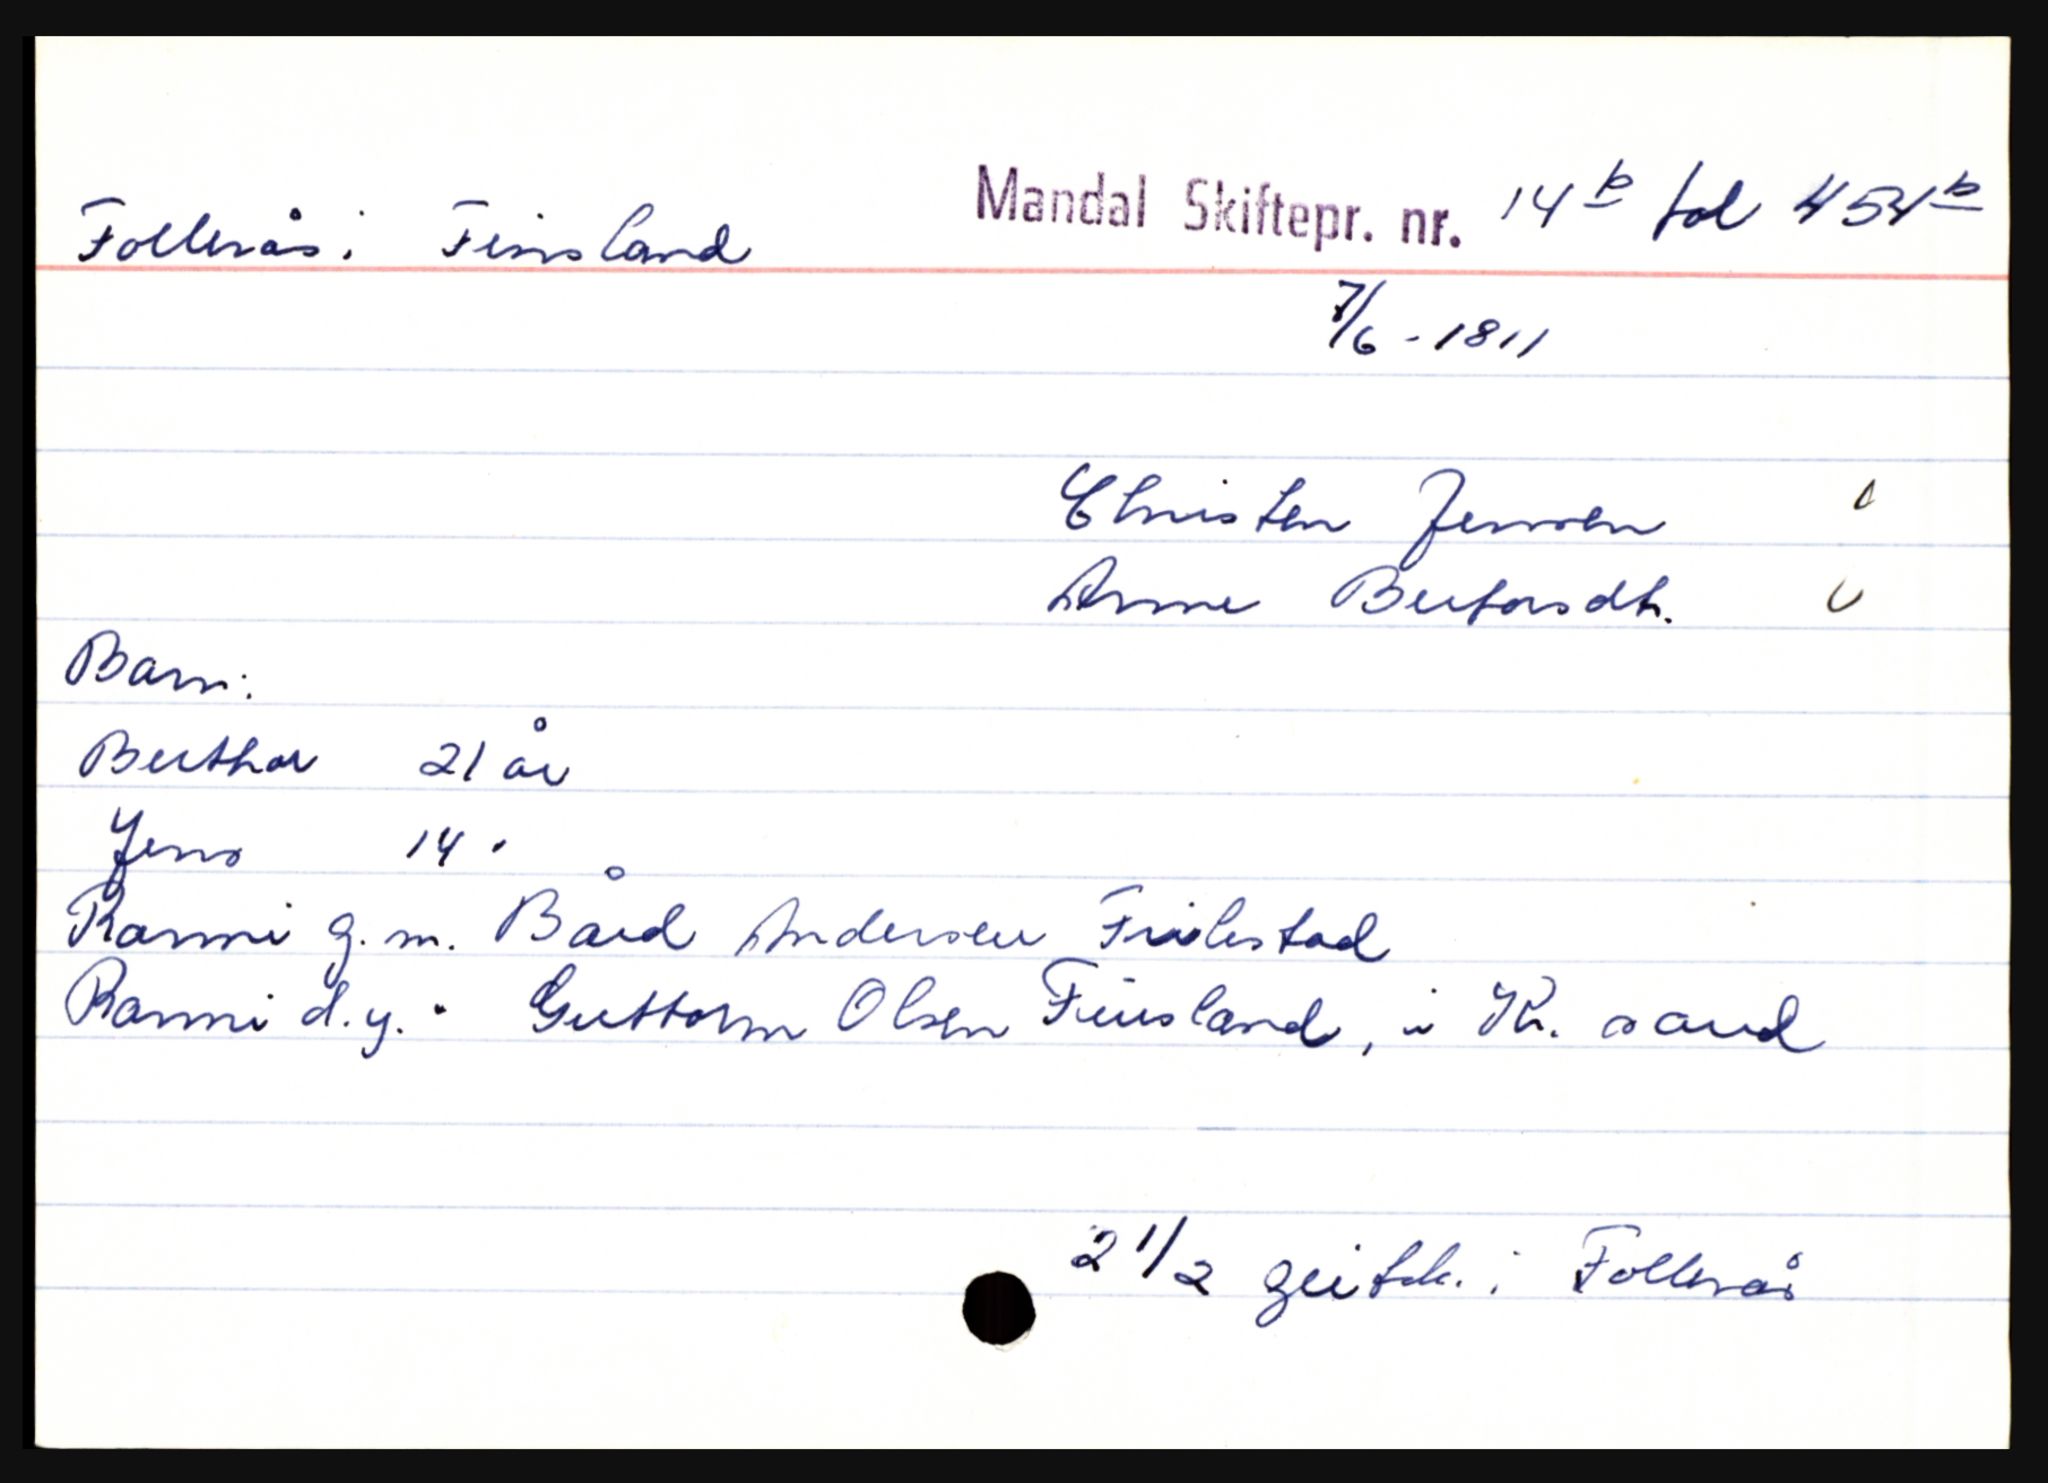 Follerås i Finsland Mandal Skiftepr. nr. 14b fol 454b
7/6 - 1811
Christen Jensen
Anne Bertorsdtr.
Barn:
Berthor 21 år
Jens 14 "
Ranni g. m. Bård Andersen Frilestad
Ranni d.y. " Guttorm Olsen Finsland, i Kr. sand
2 1/2 geitsk. i Follerås